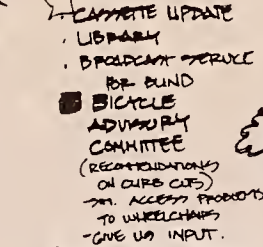 CASSETTE UPDATE
. LIBRARY
. BROADCAST SERVICE
FOR BLIND
BICYCLE
ADVISORY
COMMITTEE
(RECOMMENDATIONS
ON CURB CUTS)
ACCESS PROBLEMS
TO WHEELCHAIRS
- GIVE US INPUT.